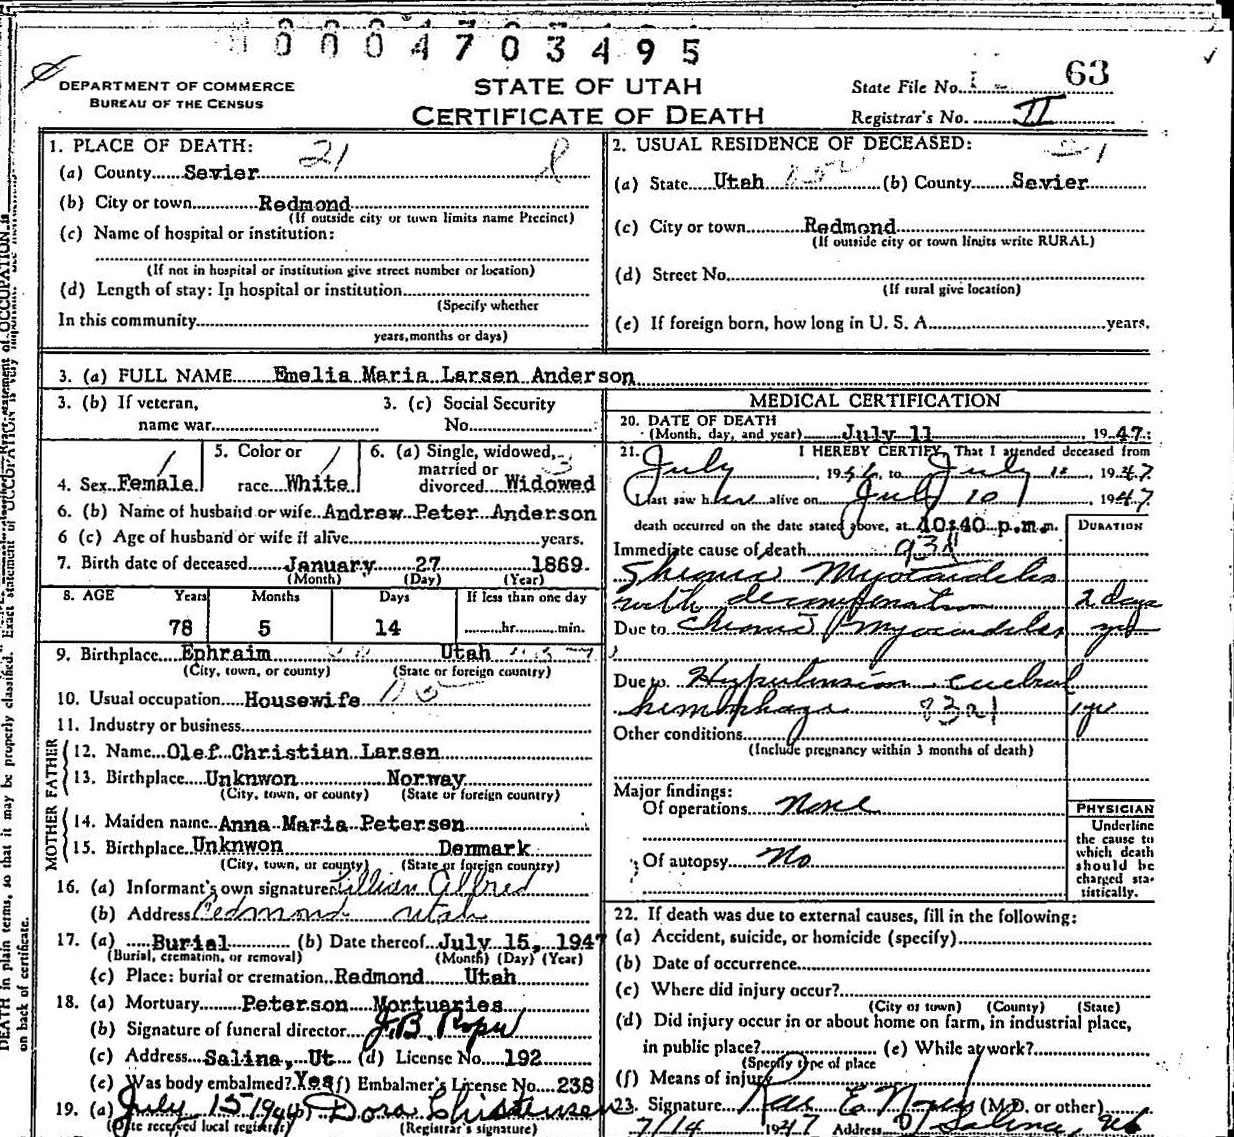 0004703495
DEPARTMENT OF COMMERCE
BUREAU OF THE CENSUS
STATE OF UTAH
CERTIFICATE OF DEATH
State File No. 63
Registrar's No. II
1. PLACE OF DEATH: 21
(a) County Sevier
(b) City or town Redmond
(If outside city or town limits name Precinct)
(c) Name of hospital or institution:
(If not in hospital or institution give street number or location)
(d) Length of stay: In hospital or institution
(Specify whether
In this community
years, months or days)
2. USUAL RESIDENCE OF DECEASED:
(a) State Utah (b) County Sevier
(c) City or town Redmond
(If outside city or town limits write RURAL)
(d) Street No.
(If rural give location)
(e) If foreign born, how long in U. S. A. years.
3. (a) FULL NAME Emelia Maria Larsen Anderson
3. (b) If veteran, name war
3. (c) Social Security No.
4. Sex Female
5. Color or race White
6. (a) Single, widowed, married or divorced Widowed
6. (b) Name of husband or wife Andrew Peter Anderson
6 (c) Age of husband or wife if alive years.
7. Birth date of deceased January 27 1869
(Month) (Day) (Year)
8. AGE Years Months Days If less than one day
78 5 14 hr. min.
9. Birthplace Ephraim Utah
(City, town, or county) (State or foreign country)
10. Usual occupation Housewife
11. Industry or business
FATHER
12. Name Olef Christian Larsen
13. Birthplace Unknwon Norway
(City, town, or county) (State or foreign country)
MOTHER
14. Maiden name Anna Maria Petersen
15. Birthplace Unknwon Denmark
(City, town, or county) (State or foreign country)
16. (a) Informant's own signature Lillian Allred
(b) Address Redmond Utah
17. (a) Burial (b) Date thereof July 15, 1947
(Burial, cremation, or removal) (Month) (Day) (Year)
(c) Place: burial or cremation Redmond Utah
18. (a) Mortuary Peterson Mortuaries
(b) Signature of funeral director J.B. Roper
(c) Address Salina, Ut (d) License No. 192
(e) Was body embalmed? Yes (f) Embalmer's License No. 238
19. (a) July 15 Dora Christensen
(Date received local registrar) (Registrar's signature)
MEDICAL CERTIFICATION
20. DATE OF DEATH
(Month, day, and year) July 11, 1947:
21. I HEREBY CERTIFY, That I attended deceased from
July, 1946, to July 11, 1947
I last saw her alive on July 10, 1947
death occurred on the date stated above, at 10:40 p.m.m. DURATION
Immediate cause of death 93d
Chronic Myocarditis
with decompensation 2 days
Due to Chronic Myocarditis
Due to Hypertension cerebral
hemorrhage 1 yr
Other conditions
(Include pregnancy within 3 months of death)
Major findings:
Of operations None
Of autopsy No
PHYSICIAN
Underline
the cause to
which death
should be
charged sta-
tistically.
22. If death was due to external causes, fill in the following:
(a) Accident, suicide, or homicide (specify)
(b) Date of occurrence
(c) Where did injury occur?
(City or town) (County) (State)
(d) Did injury occur in or about home on farm, in industrial place,
in public place? (e) While at work?
(Specify type of place
(f) Means of injury
23. Signature Rae E. Noyes (M.D. or other)
7/14 1947 Address Salina, Ut
DEATH in plain terms, so that it may be properly classified. Exact statement of OCCUPATION is
on back of certificate.